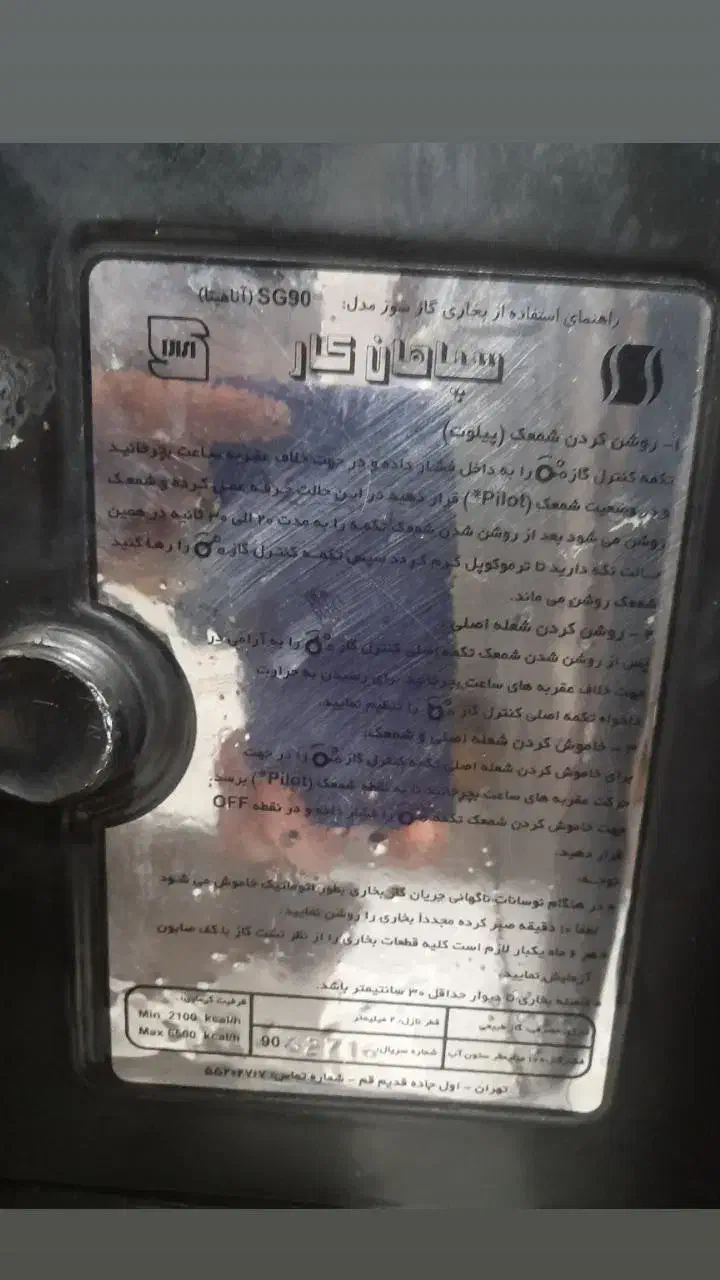 راهنمای استفاده از بخاری گاز سوز مدل: SG90 (آناهیتا)
سپاهان کار
۱- روشن کردن شمعک (پیلوت)
تکمه کنترل گاز را به داخل فشار داده و در جهت خلاف عقربه ساعت بچرخانید
و در وضعیت شمعک (Pilot*) قرار دهید در این حالت جرقه عمل کرده و شمعک
روشن می شود بعد از روشن شدن شمعک تکمه را به مدت ۲۰ الی ۳۰ ثانیه در همین
حالت نگه دارید تا ترموکوپل گرم گردد سپس تکمه کنترل گاز را رها کنید
شمعک روشن می ماند.
۲- روشن کردن شعله اصلی:
پس از روشن شدن شمعک تکمه اصلی کنترل گاز را به آرامی در
جهت خلاف عقربه های ساعت بچرخانید برای رسیدن به حرارت
دلخواه تکمه اصلی کنترل گاز را تنظیم نمایید.
۳- خاموش کردن شعله اصلی و شمعک:
برای خاموش کردن شعله اصلی تکمه کنترل گاز را در جهت
حرکت عقربه های ساعت بچرخانید تا به نقطه شمعک (Pilot*) برسد.
جهت خاموش کردن شمعک تکمه را فشار داده و در نقطه OFF
قرار دهید.
توجه:
* در هنگام نوسانات ناگهانی جریان گاز بخاری بطور اتوماتیک خاموش می شود
لطفا ۱۰ دقیقه صبر کرده مجدداً بخاری را روشن نمایید.
* هر ۶ ماه یکبار لازم است کلیه قطعات بخاری را از نظر نشت گاز با کف صابون
آزمایش نمایید.
* فاصله بخاری تا دیوار حداقل ۳۰ سانتیمتر باشد.
گاز طبیعی
قطر نازل: ۲ میلیمتر
Min 2100 kcal/h
Max 6500 kcal/h
میلیمتر ستون آب
شماره سریال: 90
تهران - اول جاده قدیم قم - شماره تماس: